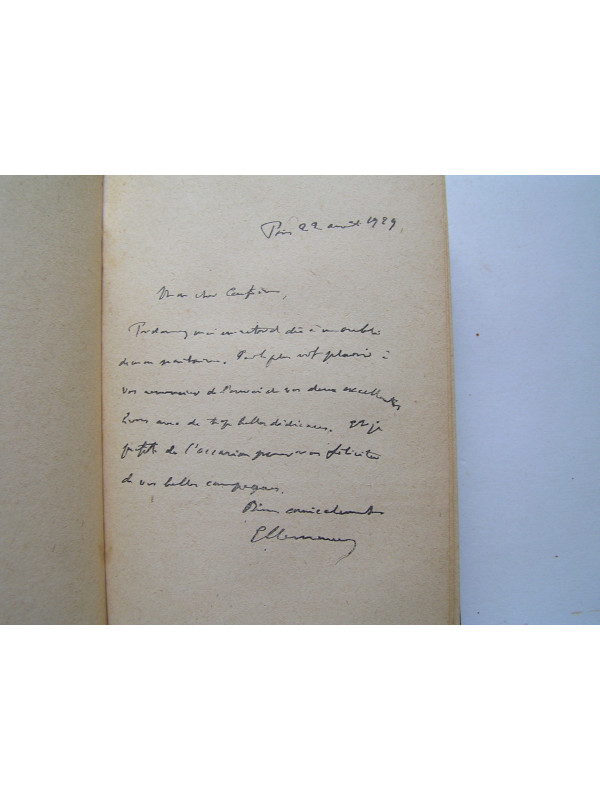 Paris 22 avril 1929.
Mon cher Confrère,
Pardonnez moi un retard dû à un oubli
de mon secrétaire. J'ai le plus vif plaisir à
vous remercier de l'envoi de vos deux excellents
livres avec de trop belles dédicaces. Et je
profite de l'occasion pour vous féliciter
de vos belles campagnes.
Bien amicalement